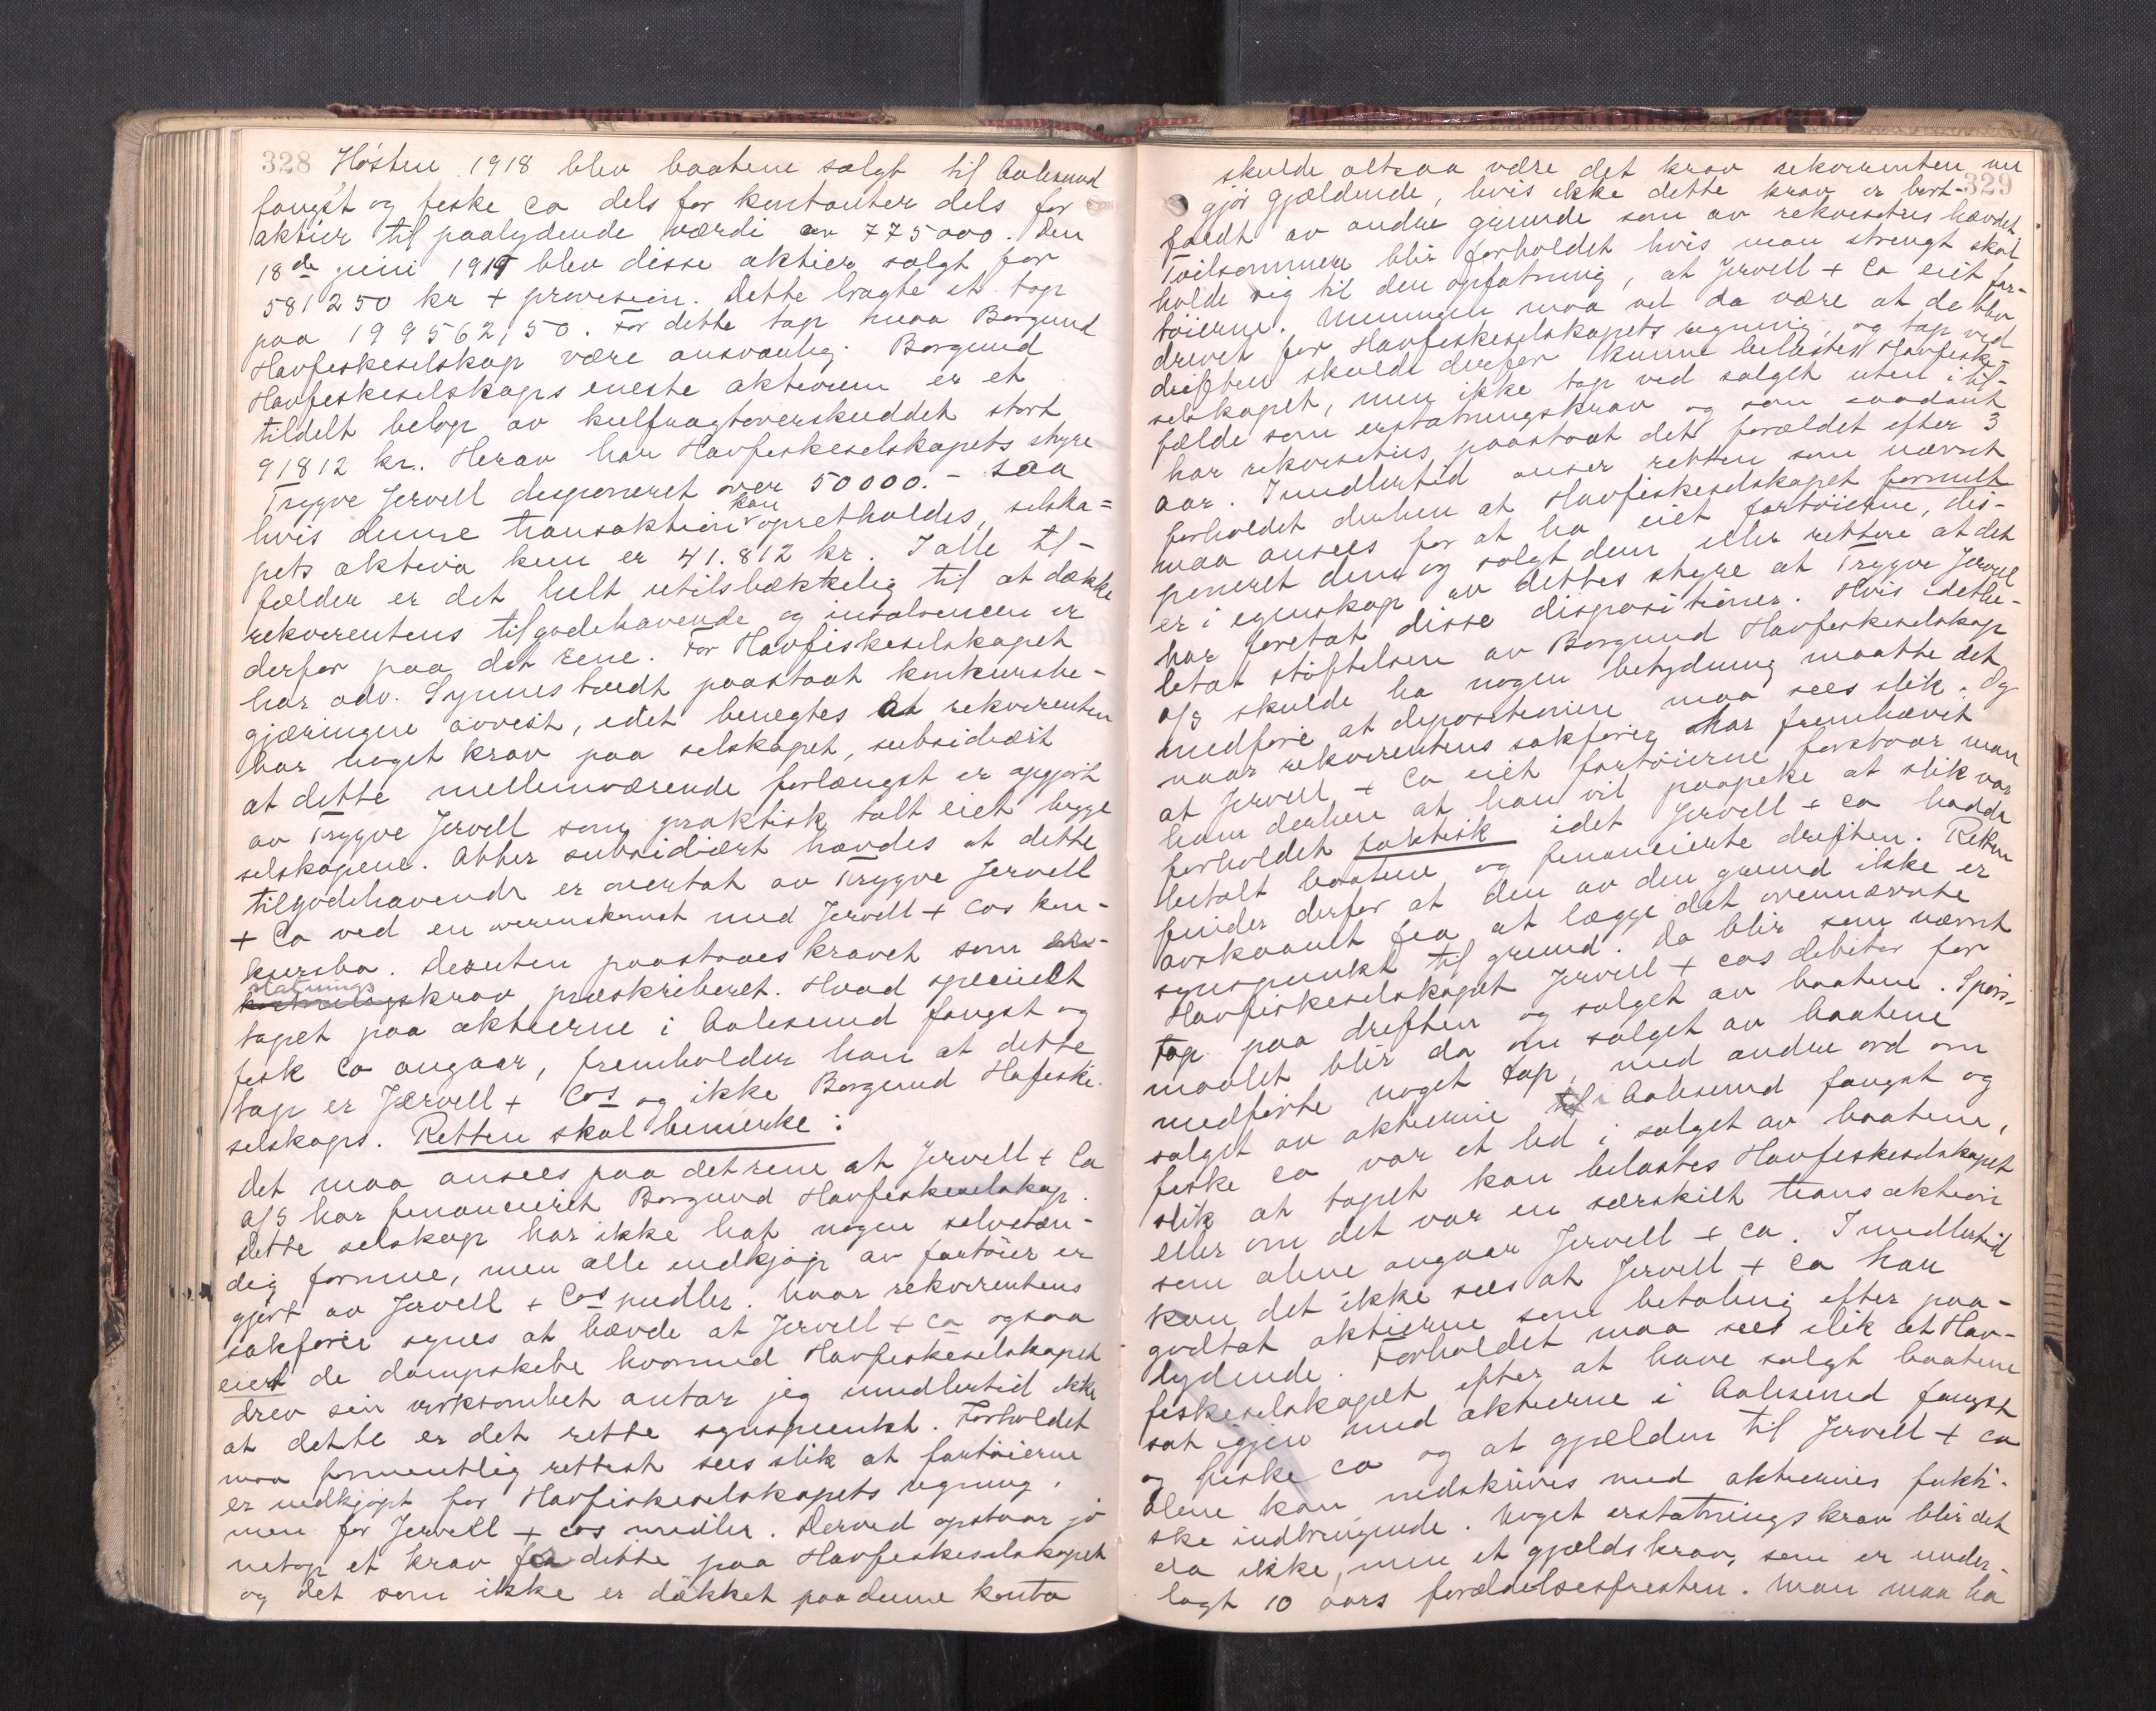 328
Høsten 1918 blev baatene solgt til Aalesund
fangst og fiske Co dels for kontanter dels for
aktier til paalydende værdi av 775000. Den
18de juni 1919 blev disse aktier solgt for
581250 kr + provision. Dette bragte et tap
paa 199562,50. For dette tap maa Borgund
Havfiskeselskap være ansvarlig. Borgund
Havfiskeselskaps eneste aktivum er et
tildelt beløp av kulfragtoverskuddet stort
91812 kr. Herav har Havfiskeselskapets styre
Trygve Jervell disponeret over 50000.- saa
hvis denne transaktion kan opretholdes, selska=
pets aktiva kun er 41.812 kr. I alle til-
fælder er det helt utilstrækkelig til at dække
rekvirentens tilgodehavende og insolvensen er
derfor paa det rene. For Havfiskeselskapet
har adv. Synnestvedt paastaat konkursbe-
gjæringen avvist, idet benegtes at rekvirenten
har noget krav paa selskapet, subsidiært
at dette mellemværende forlængst er opgjort
av Trygve Jervell som praktisk talt eiet begge
selskapene. Atter subsidiært hævdes at dette
tilgodehavende er overtat av Trygve Jervell
+ Co ved en overenskomst med Jervell + Cos kon-
kursbo. Desuten paastaaes kravet som er-
statningskrav præskriberet. Hvad specielt
tapet paa aktierne i Aalesund fangst og
fisk Co angaar, fremholder han at dette
tap er Jervell + Cos og ikke Borgund Hafiske-
selskaps. Retten skal bemerke:
Det maa ansees paa det rene at Jervell + Co
A/S har financieret Borgund Havfiskeselskap.
Dette selskap har ikke hat nogen selvstæn-
dig formue, men alle indkjøp av fartøier er
gjort av Jervell + Cos midler. Naar rekvirentens
sakfører synes at hævde at Jervell + Co ogsaa
eiert de dampskibe hvormed Havfiskeselskapet
drev sin virksomhet antar jeg imidlertid ikke
at dette er det rette synspunkt. Forholdet
maa formentlig rettest sees slik at fartøierne
er indkjøpt for Havfiskeselskapets regning,
men for Jervell + Cos midler. Derved opstaar jo
netop et krav fra dette paa Havfiskeselskapet
og det som ikke er dækket paa denne konto
329
skulde altsaa være det krav rekvirenten nu
gjør gjældende, hvis ikke dette krav er bort-
faldt av andre grunde som av rekvisitus hævdet.
Tvilsommere blir forholdet hvis man strengt skal
holde sig til den opfatning, at Jervell + Co eiet far-
tøierne. Meningen maa vel da være at de blev
drevet for Havfiskeselskapets regning, og tap ved
driften skulde derfor kunne belastes Havfiske-
selskapet, men ikke tap ved salget uten i til-
fælde som erstatningskrav og som saadant
har rekvisitus paastaat det forældet efter 3
aar. Imidlertid anser retten som nævnt
forholdet derhen at Havfiskeselskapet formelt
maa ansees for at ha eiet fartøierne, dis-
poneret dem og solgt dem eller rettere at det
er i egenskap av dettes styre at Trygve Jervell
har foretat disse dispositioner. Hvis idethe-
letat stiftelsen av Borgund Havfiskeselskap
A/S skulde ha nogen betydning maatte det
medføre at dispositionene maa sees slik. Og
naar rekvirentens sakfører har fremhævet
at Jervell + Co eiet fartøierne forstaar man
ham derhen at han vil paapeke at slik var
forholdet faktisk idet Jervell + Co hadde
betalt baatene og financierte driften. Retten
finder derfor at den av den grund ikke er
avskaaret fra at lægge det ovennævnte
synspunkt til grund. Da blir som nævnt
Havfiskeselskapet Jervell + Cos debitor for
tap paa driften og salget av baatene. Spørs-
maalet blir da om salget av baatene
medførte noget tap, med andre ord om
salget av aktierne i Aalesund fangst og
fiske Co var et led i salget av baatene,
slik at tapet kan belastes Havfiskeselskapet
eller om det var en særskilt transaktion
som alene angaar Jervell + Co. Imidlertid
kan det ikke sees at Jervell + Co har
godtat aktierne som betaling efter paa-
lydende. Forholdet maa sees slik at Hav-
fiskeselskapet efter at have solgt baatene
sat igjen med aktierne i Aalesund fangst
og fiske Co og at gjælden til Jervell + Co
alene kan nedskrives med aktiernes fakti-
ske indbringende. Noget erstatningskrav blir det
da ikke, men et gjældskrav, som er under-
lagt 10 aars forældelsesfristen. Man maa ha